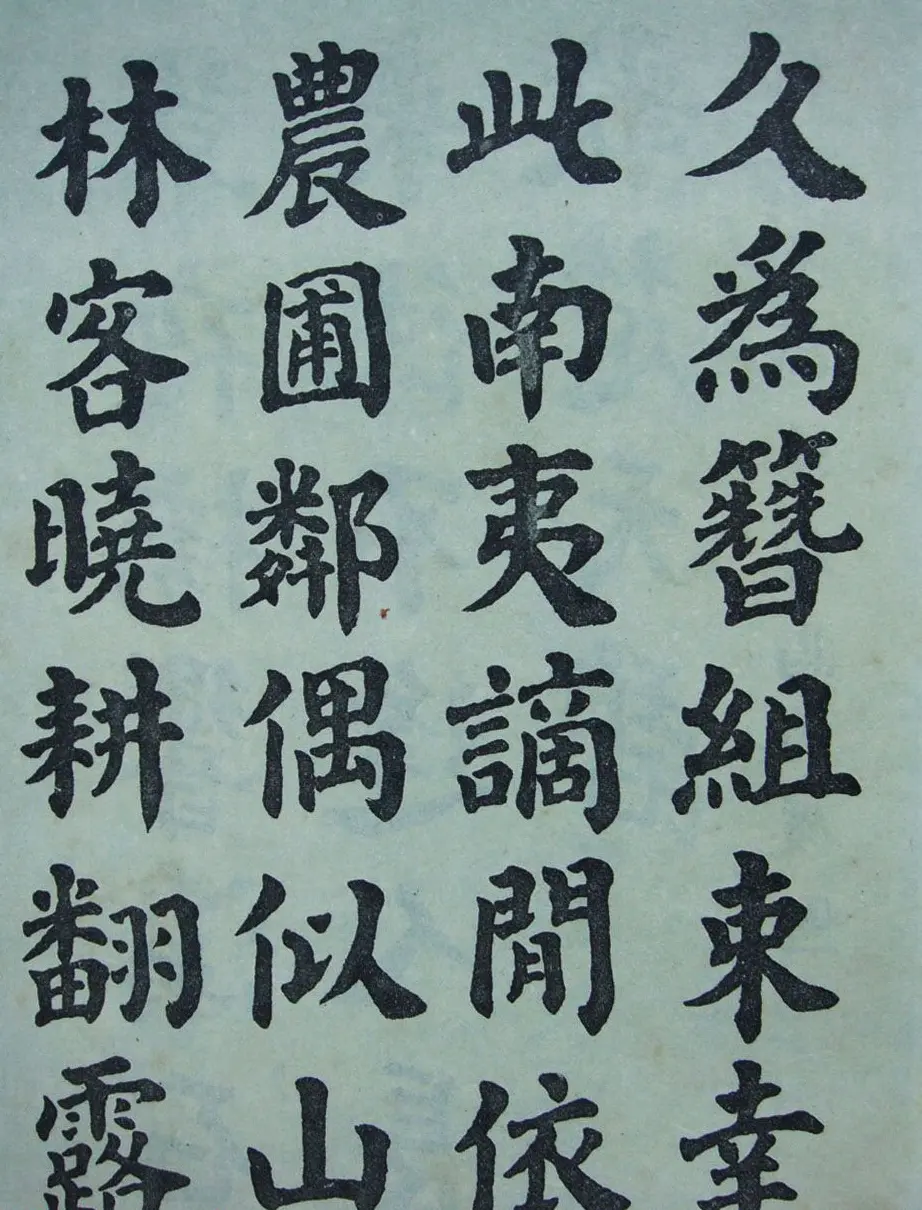 久為簪組束幸
此南夷謫閒依
農圃鄰偶似山
林客曉耕翻露